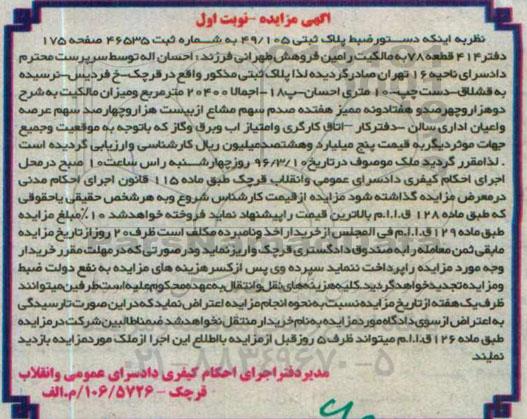 آگهی مزایده -نوبت اول
نظربه اینکه دستورضبط پلاک ثبتی ۴۹/۱۰۵ به شماره ثبت ۴۶۵۳۵ صفحه ۱۷۵
دفتر۴۱۴ قطعه ۷۸به مالکیت رامین فروهش طهرانی فرزند : احسان اله توسط سرپرست محترم
دادسرای ناحیه ۱۶ تهران صادرگردیده لذا پلاک ثبتی مذکور واقع در قرچک-خ فردیس-نرسیده
به قشلاق-دست چپ-۱۰ متری احسان-پ۱۸-اجمالا ۲۰۴۰۰ مترمربع ومیزان مالکیت به شرح
دوهزاروچهارصدو هفتادونه ممیز هفتده صدم سهم مشاع ازبیست هزاروچهارصد سهم عرصه
واعیان اداری سالن -دفترکار -اتاق کارگری وامتیاز اب وبرق وگاز که باتوجه به موقعیت وجمیع
جهات موثردیگربه قیمت پنج میلیارد وهشتصدمیلیون ریال کارشناسی وارزیابی گردیده است
. لذامقرر گردید ملک موصوف درتاریخ۹۶/۳/۱۰ روزچهارشنبه راس ساعت۱۰ صبح درمحل
اجرای احکام کیفری دادسرای عمومی وانقلاب قرچک طبق ماده ۱۱۵ قانون اجرای احکام مدنی
درمعرض مزایده گذاشته شود مزایده ازقیمت کارشناس شروع وبه هرشخص حقیقی یاحقوقی
که طبق ماده ۱۲۸ ق.ا.ا.م بالاترین قیمت راپیشنهاد نماید فروخته خواهدشد ۱۰٪مبلغ مزایده
طبق ماده۱۲۹ق.ا.ا.م فی المجلس ازخریدار اخذ ونامبرده مکلف است ظرف۲۰ روزازتاریخ مزایده
مابقی ثمن معامله رابه صندوق دادگستری قرچک واریزنماید ودرصورتی که درمهلت مقررخریدار
وجه مورد مزایده راپرداخت ننماید سپرده وی پس ازکسرهزینه های مزایده به نفع دولت ضبط
ومزایده تجدیدخواهدگردید.کلیه هزینه های نقل وانتقال به عهده محکوم علیه است طرفین میتوانند
ظرف یک هفته ازتاریخ مزایده نسبت به نحوه انجام مزایده اعتراض نمایدکه دراین صورت تارسیدگی
به اعتراض ازسوی دادگاه موردمزایده به نام خریدارمنتقل نخواهدشد.ضمناطالبین شرکت درمزایده
طبق ماده ۱۲۶ق.ا.ا.م میتواند ظرف ۵ روزقبل ازمزایده بااطلاع این اجرا ازملک موردمزایده بازدید
نمایند
مدیردفتراجرای احکام کیفری دادسرای عمومی وانقلاب
قرچک - ۱۰۶/۵۷۲۶/م.الف
۰۲۱-۸۸۳۴۹۶۷۰-۵